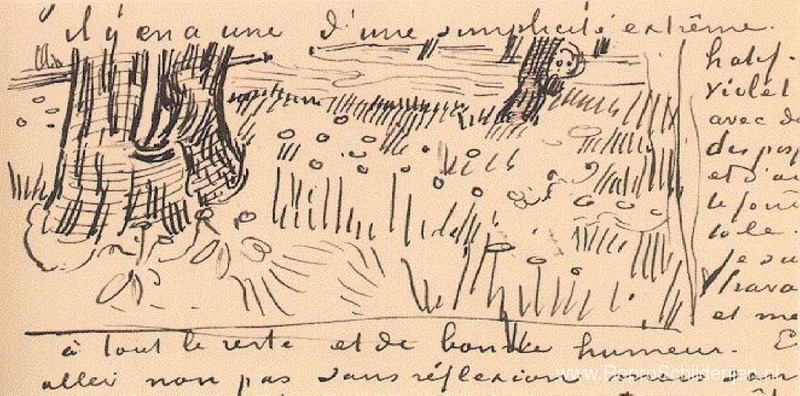 il y en a une d'une simplicité extrême.
violet
avec de
et d'au
le fond
Je su
trava
et me
à tout le reste et de bonne humeur. E
aller non pas sans réflexion
www.ReproSchilderijen.nl